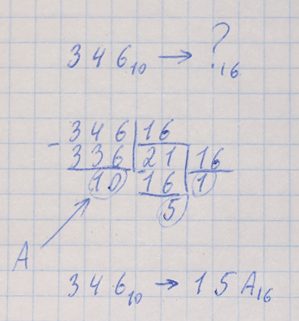 346₁₀ → ?₁₆
- 346 | 16
336 | 21 | 16
10 | 16 | 1
5
A
346₁₀ → 15A₁₆